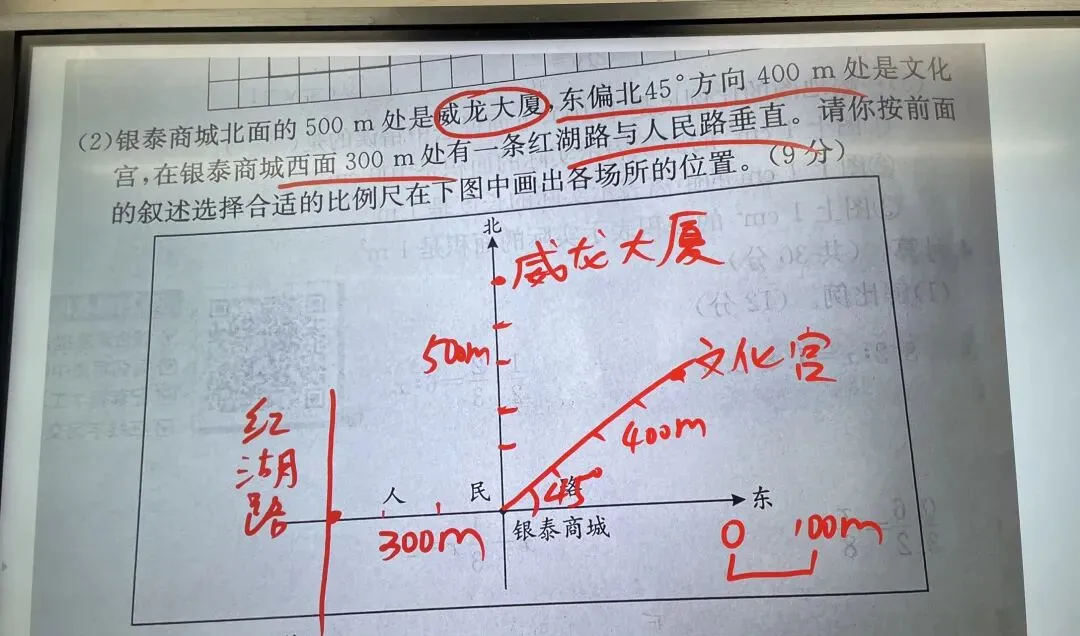 (2)银泰商城北面的 500 m 处是威龙大厦,东偏北45°方向 400 m 处是文化
宫,在银泰商城西面 300 m 处有一条红湖路与人民路垂直。请你按前面
的叙述选择合适的比例尺在下图中画出各场所的位置。(9 分)
北
威龙大厦
500m
文化宫
400m
红湖路
45°
人 民 路
东
银泰商城
300m
0 100m